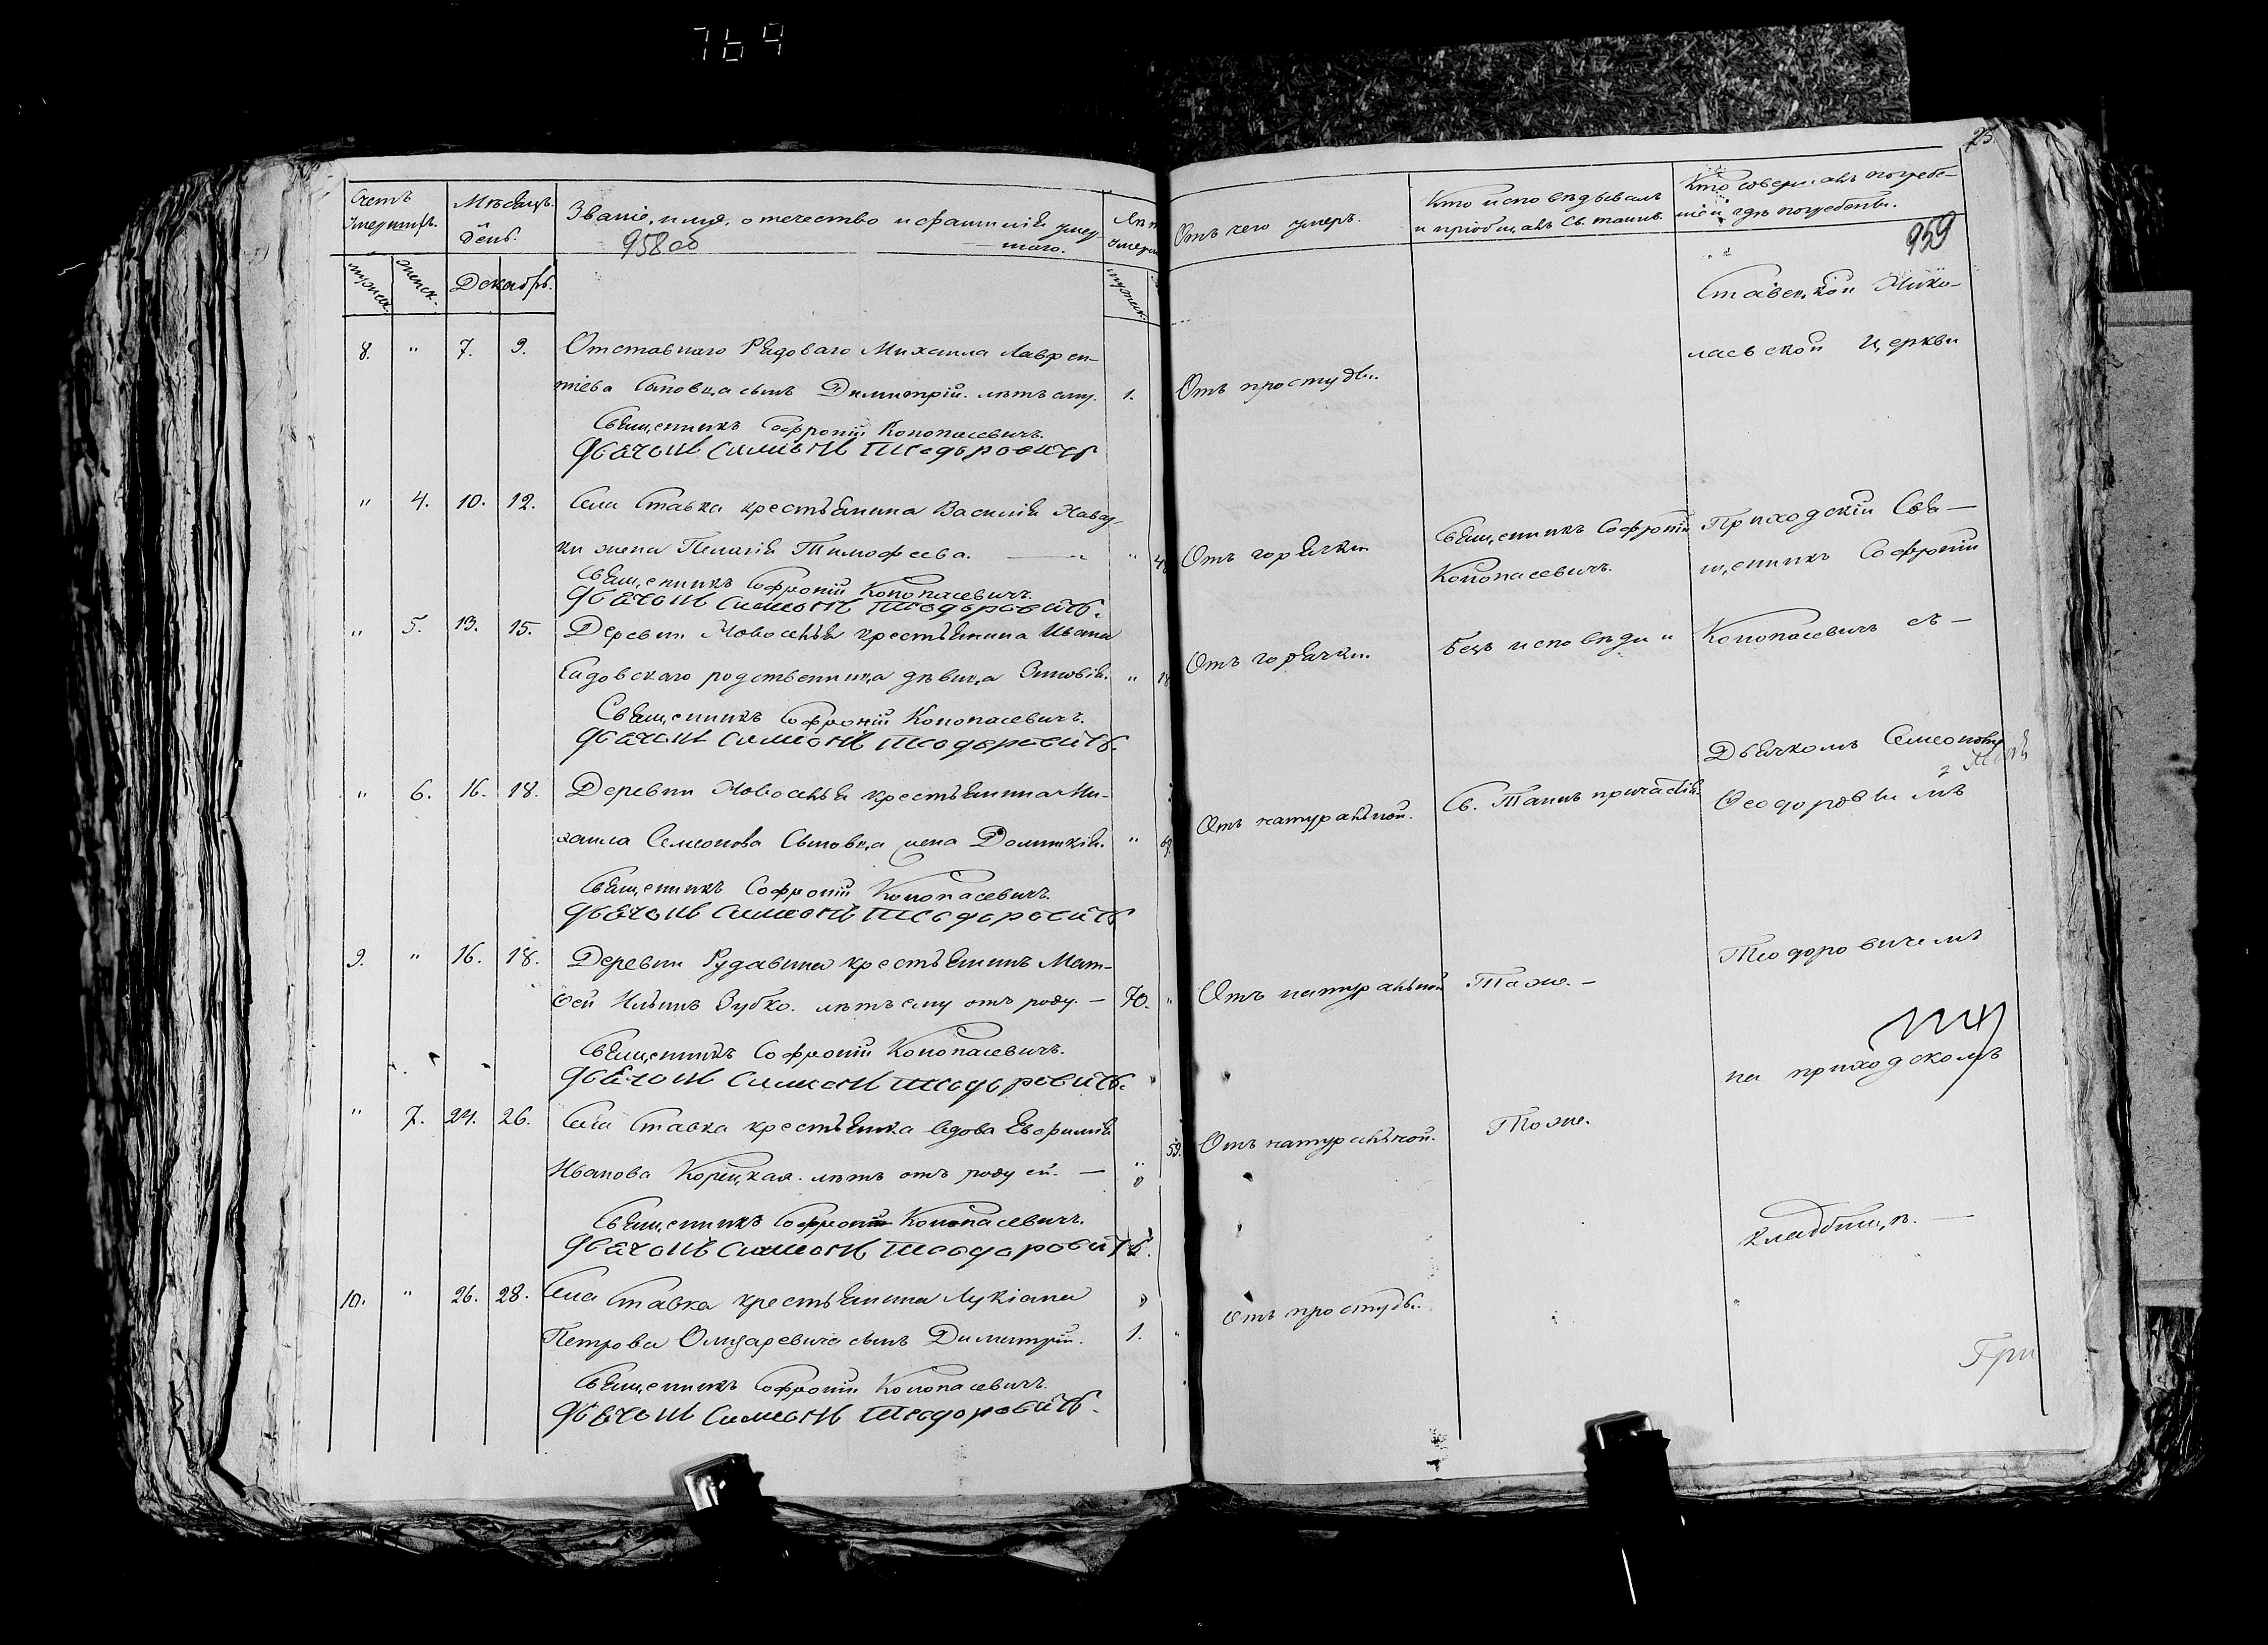 764
Счетъ
Умершихъ.
Мѣсяцъ.
День.
Званіе, имя, отчество и фамилія умер-
шаго.
958 об
мужск.
женск.
Декабрь.
мужск.
8. " 7. 9. Отставнаго Рядоваго Михаила Лаврен-
тіева Сыновца сынъ Димитрій. лѣтъ ему. 1.
Священникъ Софроній Конопасевичъ.
Дьячокъ Симеонъ Теодоровичъ
" 4. 10. 12. Села Ставка крестьянина Василія
ки жена Пелагія Тимофеева. — "
Священникъ Софроній Конопасевичъ.
Дьячокъ Симеонъ Теодоровичъ.
" 5. 13. 15. Деревни Новоселья крестьянина Ивана
Садовскаго родственница дѣвица Зиновія. "
Священникъ Софроній Конопасевичъ.
Дьячокъ Симеонъ Теодоровичъ.
" 6. 16. 18. Деревни Новоселья крестьянина Ми-
хаила Семеонова Сыновца жена Домникія. "
Священникъ Софроній Конопасевичъ.
Дьячокъ Симеонъ Теодоровичъ
9. " 16. 18. Деревни Рудавина крестьянинъ Мат-
ѳей Ильинъ Зубко. лѣтъ ему отъ роду. — 70. "
Священникъ Софроній Конопасевичъ.
Дьячокъ Симеонъ Теодоровичъ.
" 7. 24. 26. Села Ставка крестьянка вдова Евфимія
Иванова Корецкая. лѣтъ отъ роду ей. — " 59.
Священникъ Софроній Конопасевичъ.
Дьячокъ Симеонъ Теодоровичъ.
10. " 26. 28. Села Ставка крестьянина Лукіана
Петрова Олизаревича сынъ Димитрій. 1. "
Священникъ Софроній Конопасевичъ.
Дьячокъ Симеонъ Теодоровичъ.
25.
Отъ чего умеръ.
Кто исповѣдывалъ
и пріобщалъ Св. таинъ.
Кто совершалъ погребе-
ніе и гдѣ погребенъ.
959
Отъ простуды.
Отъ горячки.
Отъ горячки.
Отъ натуральной.
Отъ натуральной
Отъ натуральной.
Отъ простуды.
Священникъ Софроній
Конопасевичъ.
Безъ исповѣди и
Св. Таинъ причастія.
Тоже. —
Тоже.
Ставецкой Нико-
лаевской церкви
Приходскій Свя-
щенникъ Софроній
Конопасевичъ съ —
Дьячкомъ Семеономъ
Ѳеодоровымъ
Теодоровичемъ
на приходскомъ
кладбищѣ. —
При